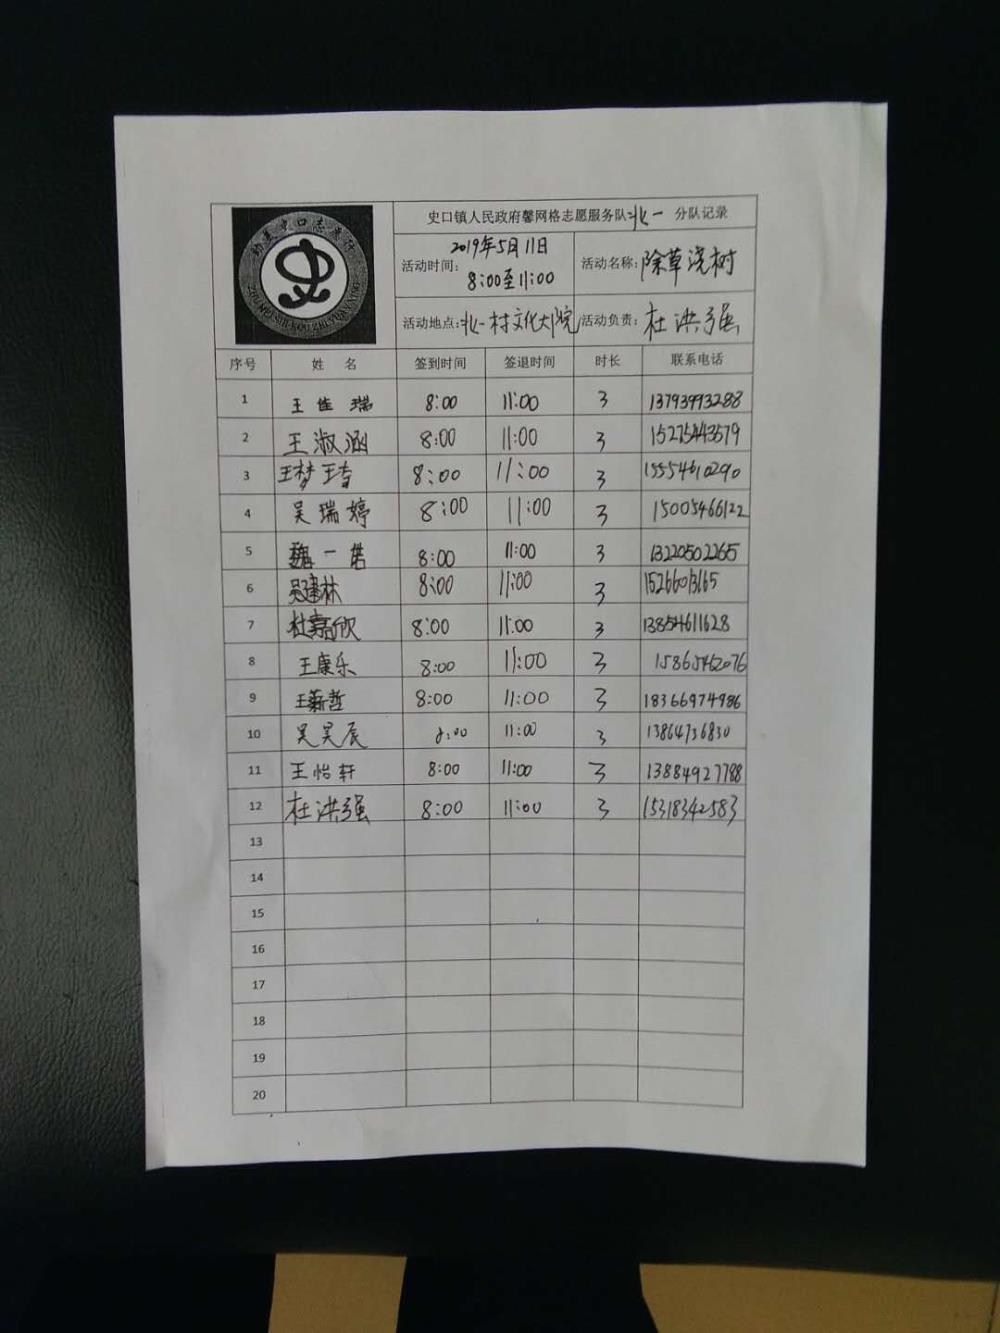 史口镇人民政府馨网格志愿服务队北一 分队记录
活动时间: 2019年5月11日
8:00至11:00
活动名称: 除草浇树
活动地点: 北一村文化大院
活动负责: 杜洪强
序号 姓 名 签到时间 签退时间 时长 联系电话
1 王佳瑞 8:00 11:00 3 13793993288
2 王淑涵 8:00 11:00 3 15275443579
3 王梦 8:00 11:00 3 15554610290
4 吴瑞婷 8:00 11:00 3 15005466122
5 魏一诺 8:00 11:00 3 13220502265
6 吴建林 8:00 11:00 3
7 杜嘉欣 8:00 11:00 3 13854611628
8 王康乐 8:00 11:00 3 15865462076
9 王蔚哲 8:00 11:00 3 18366974986
10 吴昊辰 8:00 11:00 3 13864736830
11 王怡轩 8:00 11:00 3 13884927788
12 杜洪强 8:00 11:00 3 15318342583
13
14
15
16
17
18
19
20